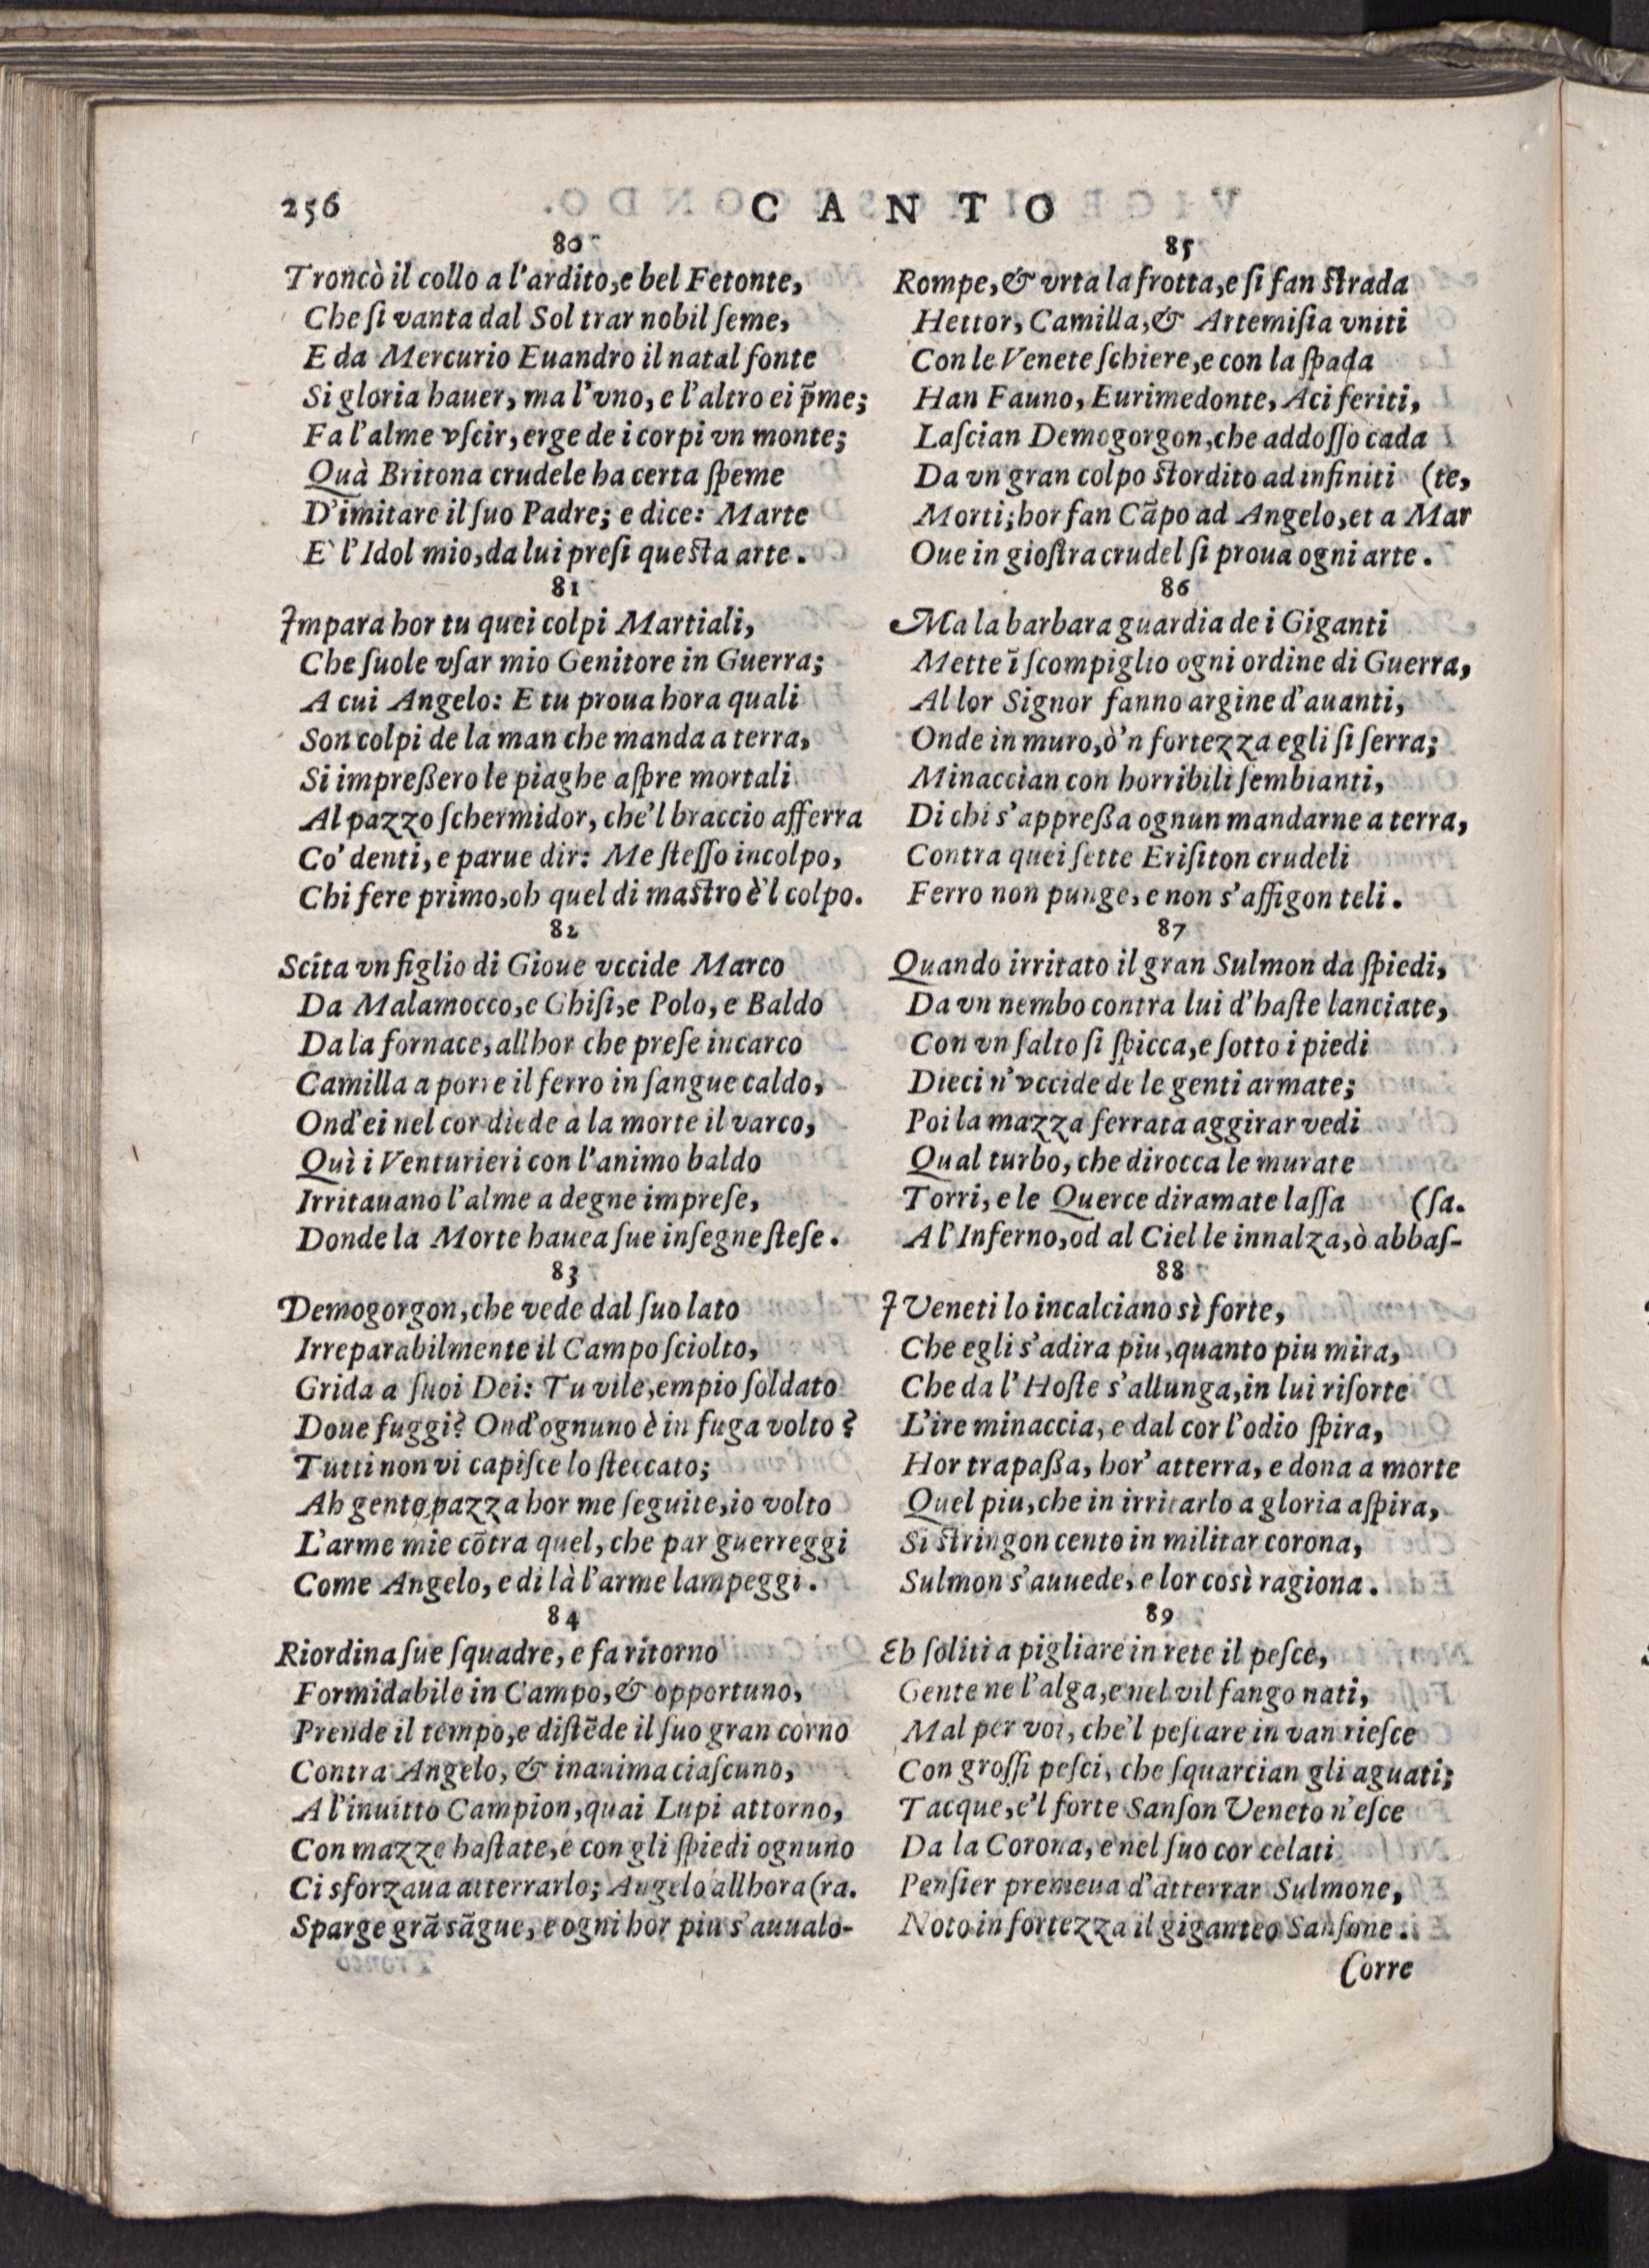 256
CANTO
80
Troncò il collo a l'ardito, e bel Fetonte,
Che ſi vanta dal Sol trar nobil ſeme,
E da Mercurio Euandro il natal fonte
Si gloria hauer, ma l'vno, e l'altro ei p̃me;
Fa l'alme vſcir, erge de i corpi vn monte;
Quà Britona crudele ha certa ſpeme
D'imitare il ſuo Padre; e dice: Marte
E' l'Idol mio, da lui preſi queſta arte.
81
Impara hor tu quei colpi Martiali,
Che ſuole vſar mio Genitore in Guerra;
A cui Angelo: E tu proua hora quali
Son colpi de la man che manda a terra,
Si impreßero le piaghe aſpre mortali
Al pazzo ſchermidor, che'l braccio afferra
Co' denti, e parue dir: Me ſteſſo incolpo,
Chi fere primo, oh quel di maſtro è'l colpo.
82
Scita vn figlio di Gioue vccide Marco
Da Malamocco, e Ghiſi, e Polo, e Baldo
Da la fornace, allhor che preſe incarco
Camilla a porre il ferro in ſangue caldo,
Ond'ei nel cor diede a la morte il varco,
Quì i Venturieri con l'animo baldo
Irritauano l'alme a degne impreſe,
Donde la Morte hauea ſue inſegne ſteſe.
83
Demogorgon, che vede dal ſuo lato
Irreparabilmente il Campo ſciolto,
Grida a ſuoi Dei: Tu vile, empio ſoldato
Doue fuggi? Ond'ognuno è in fuga volto?
Tutti non vi capiſce lo ſteccato;
Ah gente pazza hor me ſeguite, io volto
L'arme mie cõtra quel, che par guerreggi
Come Angelo, e di là l'arme lampeggi.
84
Riordina ſue ſquadre, e fa ritorno
Formidabile in Campo, & opportuno,
Prende il tempo, e diſtẽde il ſuo gran corno
Contra Angelo, & inanima ciaſcuno,
A l'inuitto Campion, quai Lupi attorno,
Con mazze haſtate, e con gli ſpiedi ognuno
Ci sforzaua atterrarlo; Angelo allhora (ra.
Sparge grã sãgue, e ogni hor piu s'auualo-
85
Rompe, & vrta la frotta, e ſi fan ſtrada
Hettor, Camilla, & Artemiſia vniti
Con le Venete ſchiere, e con la ſpada
Han Fauno, Eurimedonte, Aci feriti,
Laſcian Demogorgon, che addoſſo cada
Da vn gran colpo ſtordito ad infiniti (te,
Morti; hor fan Cãpo ad Angelo, et a Mar
Oue in gioſtra crudel ſi proua ogni arte.
86
Ma la barbara guardia de i Giganti
Mette ĩ ſcompiglio ogni ordine di Guerra,
Al lor Signor fanno argine d'auanti,
Onde in muro, ò'n fortezza egli ſi ſerra;
Minaccian con horribili ſembianti,
Di chi s'appreßa ognun mandarne a terra,
Contra quei ſette Eriſiton crudeli
Ferro non punge, e non s'affigon teli.
87
Quando irritato il gran Sulmon da ſpiedi,
Da vn nembo contra lui d'haſte lanciate,
Con vn ſalto ſi ſpicca, e ſotto i piedi
Dieci n'vccide de le genti armate;
Poi la mazza ferrata aggirar vedi
Qual turbo, che dirocca le murate
Torri, e le Querce diramate laſſa (ſa.
A l'Inferno, od al Ciel le innalza, ò abbaſ-
88
I Veneti lo incalciano sì forte,
Che egli s'adira piu, quanto piu mira,
Che da l'Hoſte s'allunga, in lui riſorte
L'ire minaccia, e dal cor l'odio ſpira,
Hor trapaßa, hor' atterra, e dona a morte
Quel piu, che in irritarlo a gloria aſpira,
Si ſtringon cento in militar corona,
Sulmon s'auuede, e lor così ragiona.
89
Eh ſoliti a pigliare in rete il peſce,
Gente ne l'alga, e nel vil fango nati,
Mal per voi, che'l peſcare in van rieſce
Con groſſi peſci, che ſquarcian gli aguati;
Tacque, e'l forte Sanſon Veneto n'eſce
Da la Corona, e nel ſuo cor celati
Penſier premeua d'atterrar Sulmone,
Noto in fortezza il giganteo Sanſone.
Corre